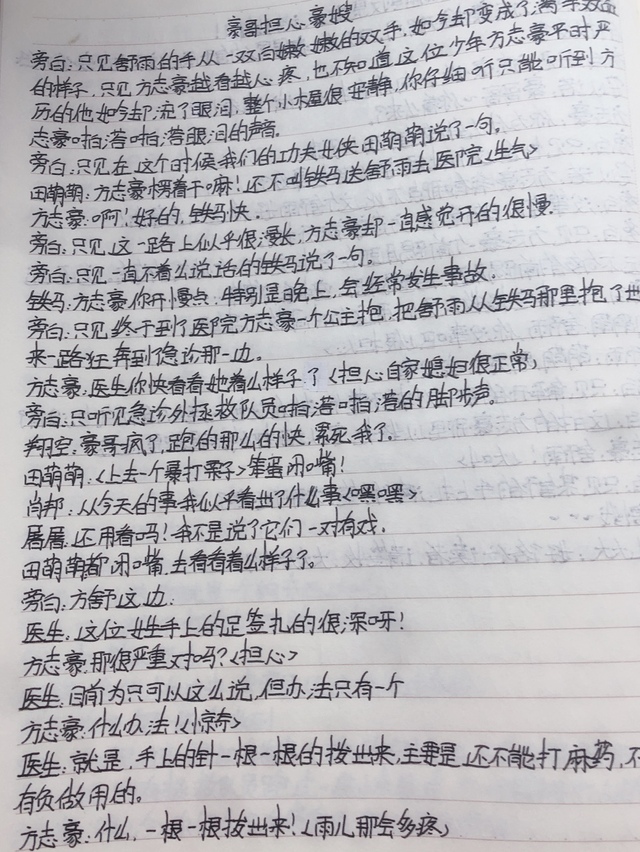 豪哥担心豪嫂
旁白:只见舒雨的手从一双白嫩嫩的双手,如今却变成了满手双血
的样子,只见方志豪越看越心疼,也不知道这位少年方志豪平时严
历的他如今却流了眼泪,整个小木屋很安静,你仔细听只能听到方
志豪啪答啪答眼泪的声音。
旁白:只见在这个时候我们的功夫女侠田萌萌说了一句。
田萌萌:方志豪愣着干嘛!还不叫铁马送舒雨去医院<生气>
方志豪:啊!好的,铁马快.
旁白:只见这一路上似乎很漫长,方志豪却一直感觉开的很慢.
旁白:只见一直不着么说话的铁马说了一句。
铁马:方志豪你开慢点,特别是晚上,会经常发生事故.
旁白:只见终于到了医院方志豪一个公主抱,把舒雨从铁马那里抱了出
来一路狂奔到急诊那一边。
方志豪:医生你快看看她着么样子了(担心自家媳妇很正常)
旁白:只听见急诊外拯救队员啪答啪答的脚步声。
翔空:豪哥疯了,跑的那么的快,累死我了.
田萌萌:<上去一个暴打栗子>笨蛋闭嘴!
肖邦:从今天的事我似乎看出了什么事<嘿嘿>
届届:还用看吗!我不是说了它们一对有戏.
田萌萌都闭嘴,去看看着么样子了。
旁白:方舒这边:
医生:这位女生手上的足签扎的很深呀!
方志豪:那很严重对吗?<担心>
医生:目前为只可以这么说,但办法只有一个
方志豪:什么办法!<惊奇>
医生:就是,手上的针一根一根的拔出来,主要是,还不能打麻药,不
有负做用的。
方志豪:什么,一根一根拔出来!(雨儿那会多疼)